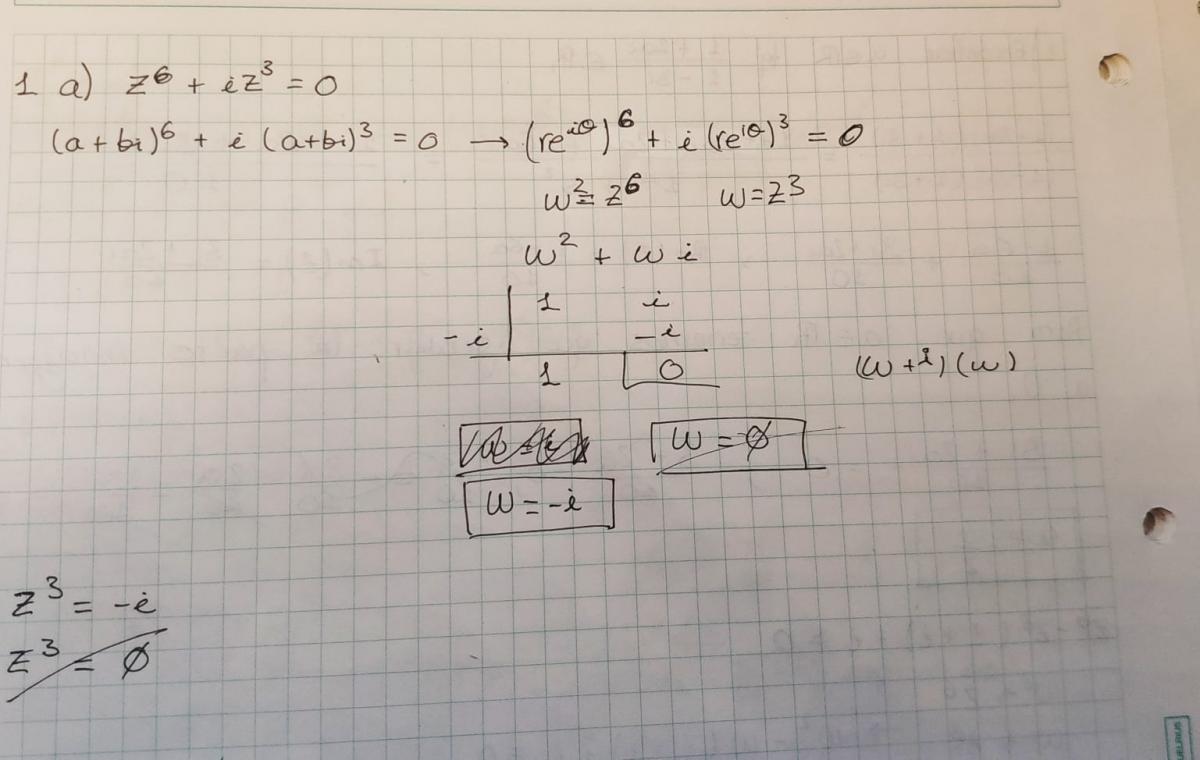 1 a) z⁶ + iz³ = 0
(a+bi)⁶ + i (a+bi)³ = 0 → (re^{iθ})⁶ + i (re^{iθ})³ = 0
w² = z⁶ w = z³
w² + w i
1 i
-i -i
1 0 (w + i) (w)
w = ∅
w = -i
z³ = -i
z³ = ∅